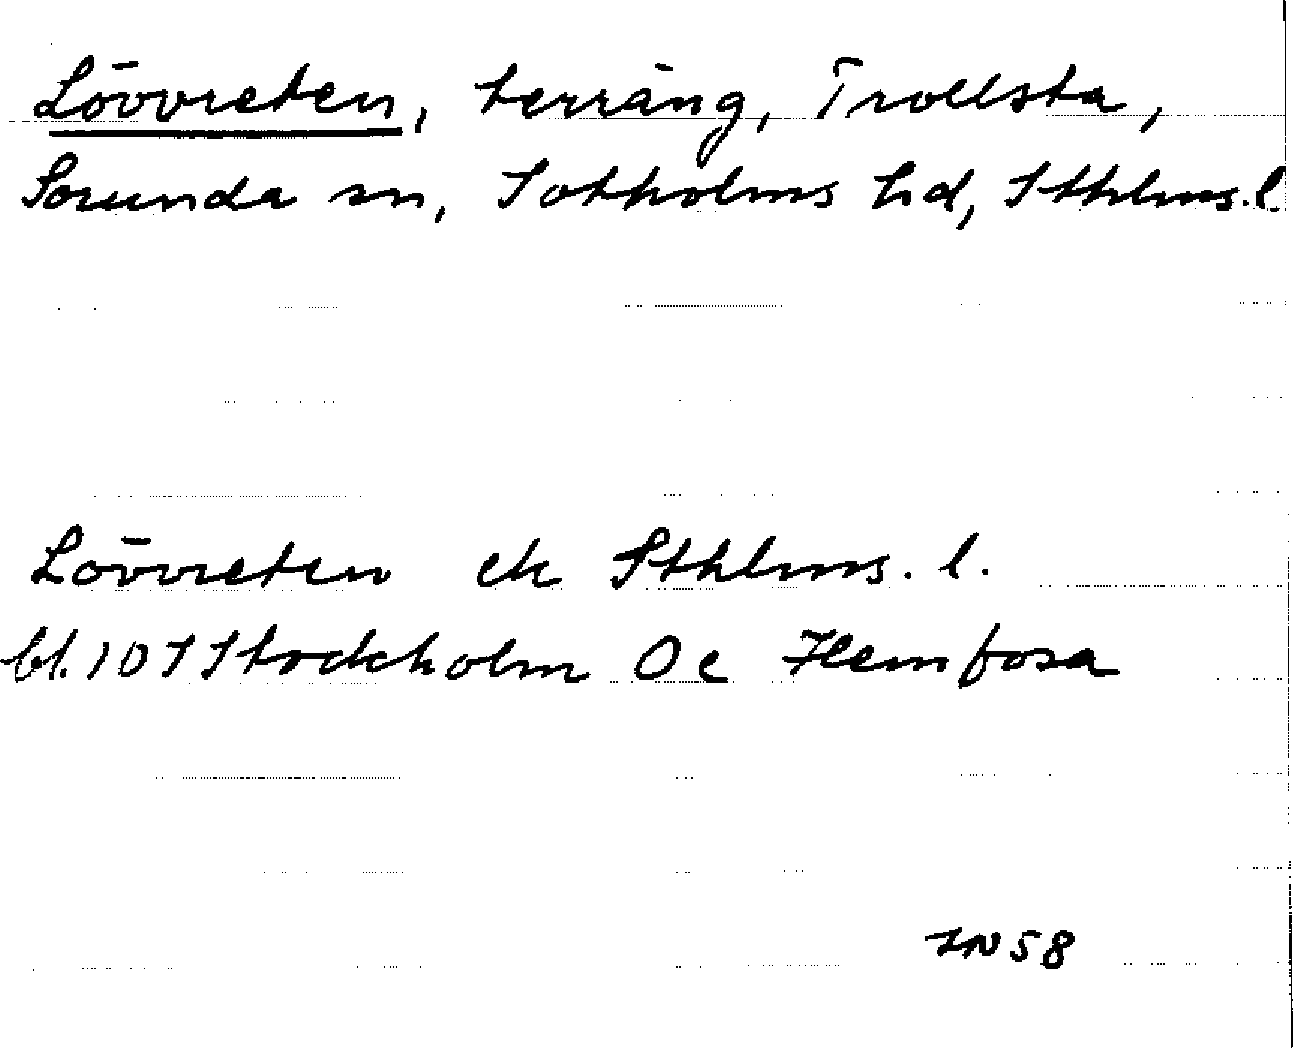 Lövvreten, terräng, Trollsta,
Sorunda sn, Sotholms hd, Sthlms. l.
Lövvreten ek Sthlms. l.
bl. 10 I Stockholm 0 e Hemfosa
IN 58